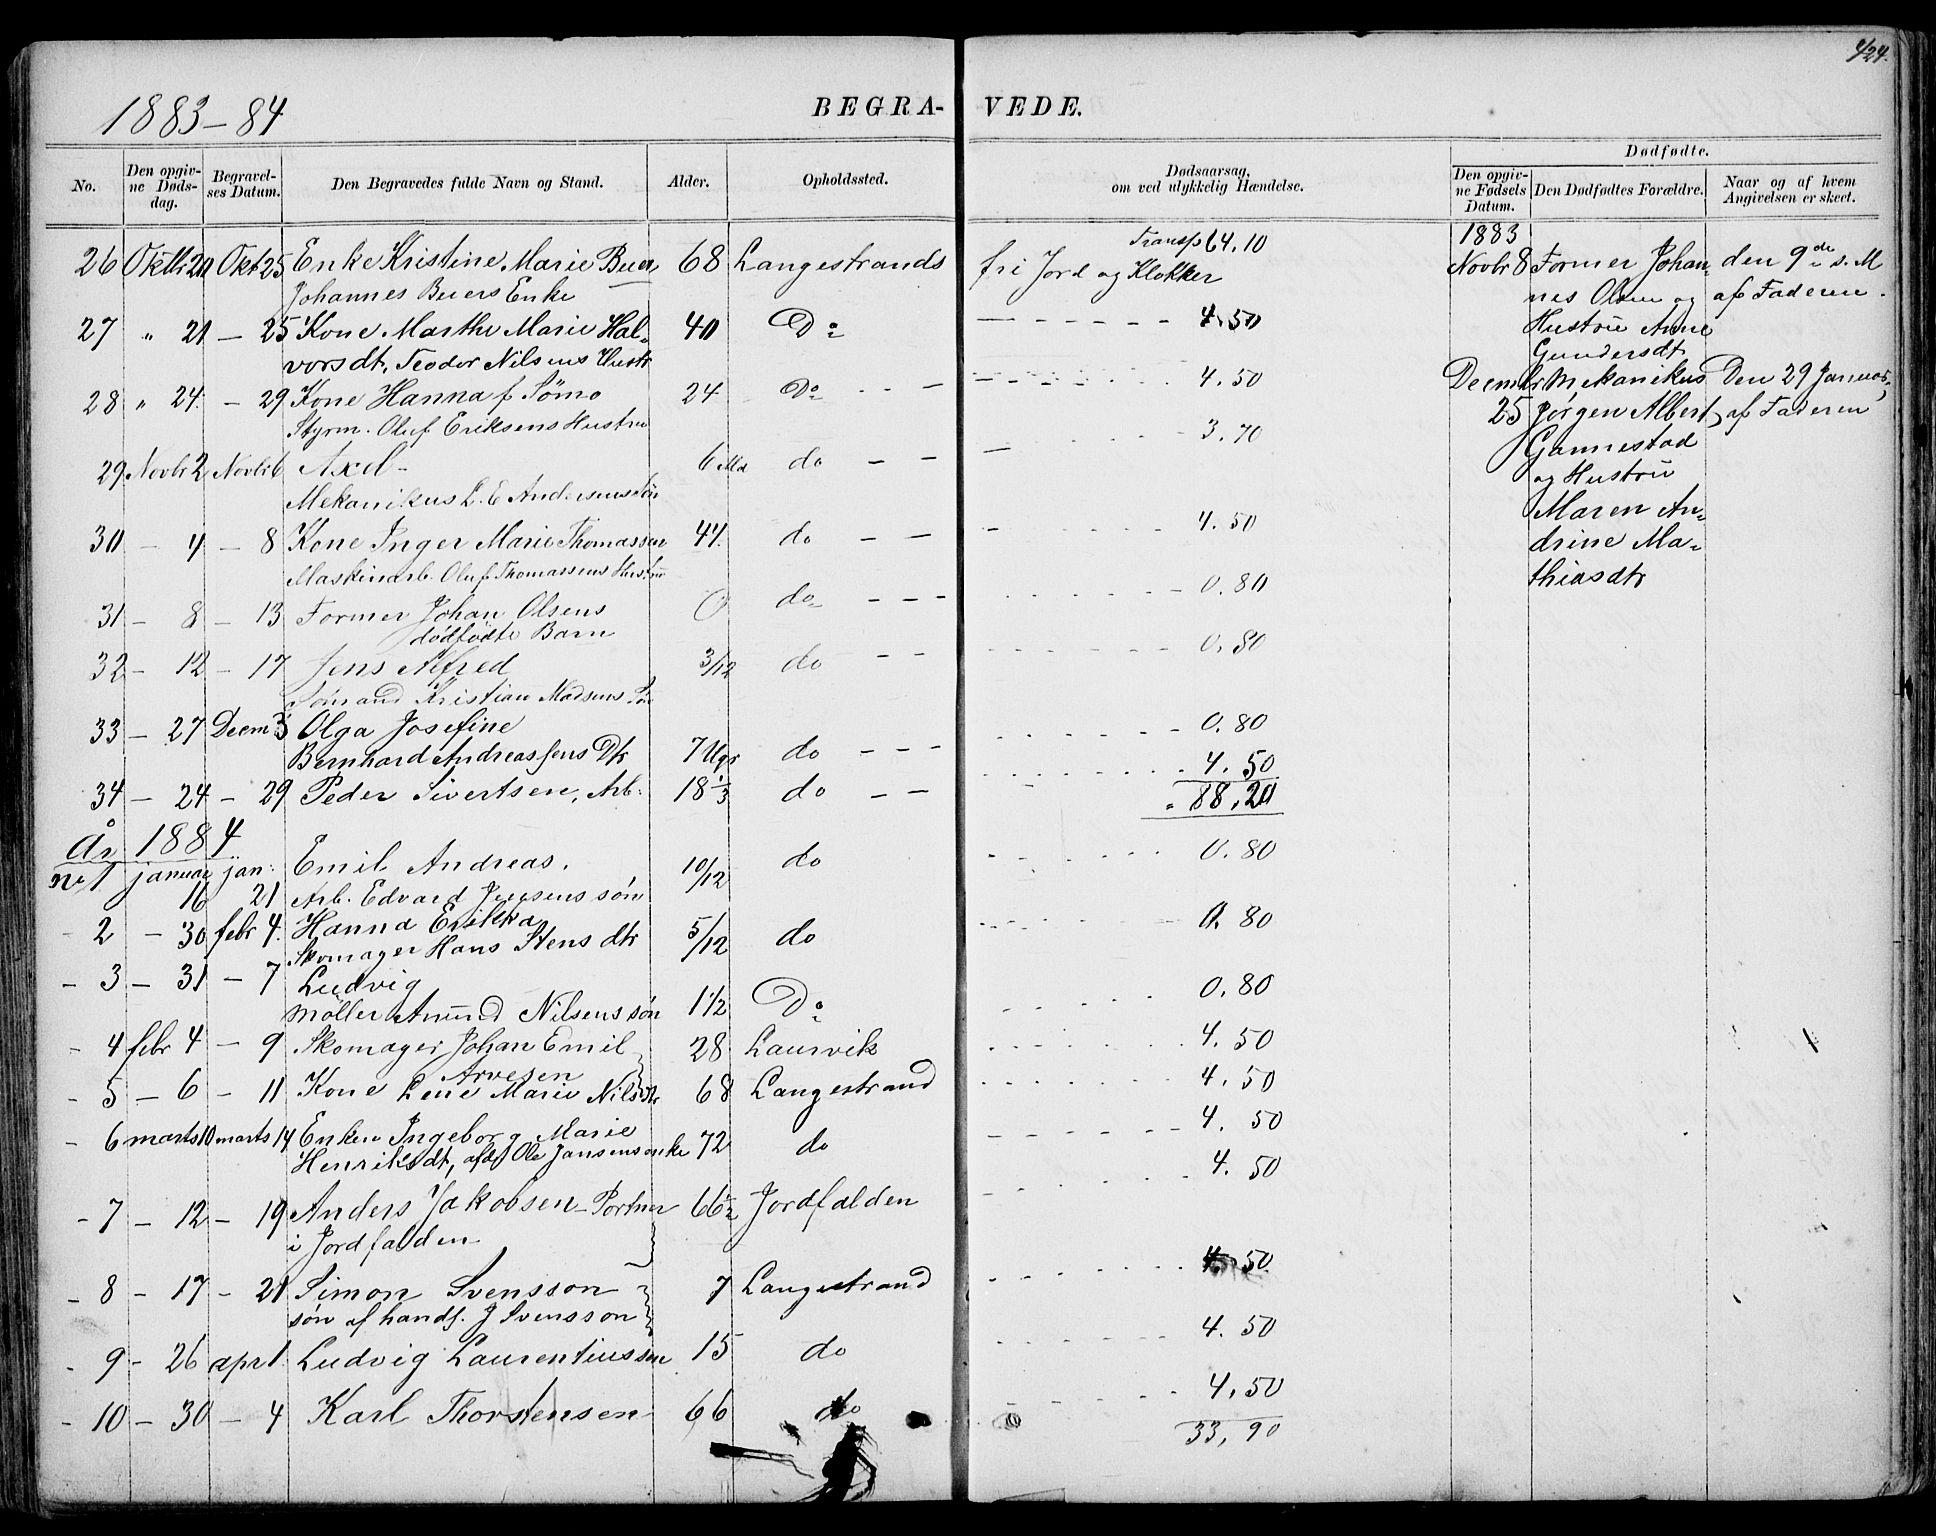 4/24.
1883-84
BEGRA-VEDE.
No. Den opgivne Dødsdag. Begravelses Datum. Den Begravedes fulde Navn og Stand. Alder. Opholdssted. Dødsaarsag, om ved ulykkelig Hændelse. Dødfødte. Den opgivne Fødsels Datum. Den Dødfødtes Forældre. Naar og af hvem Angivelsen er skeet.
Transp 64.10
26 Oktbr 20 Okt 25 Enke Kristine Marie Buer, 68 Langestrands fri Jord og Klokker
Johannes Buers Enke
27 " 21 - 25 Kone Marthe Marie Hal- 40 Do - 4.50
vorsdt, Teodor Nilsens Hustr
28 " 24. - 29 Kone Hanna f Sømo 24 Do - - 4.50
Styrm. Oluf Eriksens Hustru
29 Novbr 2 Novbr 6 Axel - 6 Md do - - 3.70
Mekanikus L. E Andersens Søn
30 - 4 - 8 Kone Inger Marie Thomassen 44. do - - 4.50
Maskinarb. Oluf Thomassens Hustru
31 - 8 - 13 Former Johan Olsens 0 do - - - 0.80
dødfødte Barn
32 - 12 - 17 Jens Alfred 3/12 do - - 0.80
Sømand Kristian Madsens Søn
33 - 27 Decm 3 Olga Josefine 0.80
Bernhard Andreassens Dtr 7 Ugr do - - -
34 - 24 - 29 Peder Sivertsen, Arb. 18 1/3 do - - 4.50
88,20
År 1884
No 1 januar jan: Emil Andreas. 10/12 do 0.80
16 21 Arb. Edvard Jensens søn
- 2 - 30 febr 4. Hanna Erikka 5/12 do 0. 80
Skomager Hans Stens dtr
- 3 - 31 - 7 Ludvig 0.80
Møller Amund Nilsens søn 1 1/2 Do
- 4 febr 4 - 9 Skomager Johan Emil 28 Laurvik 4. 50
Arvesen
- 5 - 6 - 11 Kone Lene Marie Nilsdtr 68 Langestrand 4. 50
- 6 marts 10 marts 14 Enken Ingeborg Marie 4. 50
Henriksdt, afdø Ole Jansens enke 72 do
- 7 - 12 - 19 Anders Jakobsen - Portner 66 1/2 Jordfalden 4. 50
i Jordfalden
- 8 - 17 - 21 Simon Svensson 7 Langestrand 4. 50
søn af handl. J Svensson
- 9 - 26 apr 1 Ludvig Laurentiussen 15 do 4. 50
- 10 - 30 - 4 Karl Thorstensen 66 do 4,50
33, 90
1883
Novbr 8 Former Johan- den 9de s. M
nes Olsen og af Faderen.
Hustru Anne
Gundersdt
Decmbr Mekanikus Den 29 Januar,
25 Jørgen Albert af Faderen
Gannestad
og Hustru
Maren An-
drine Ma-
thiasdtr